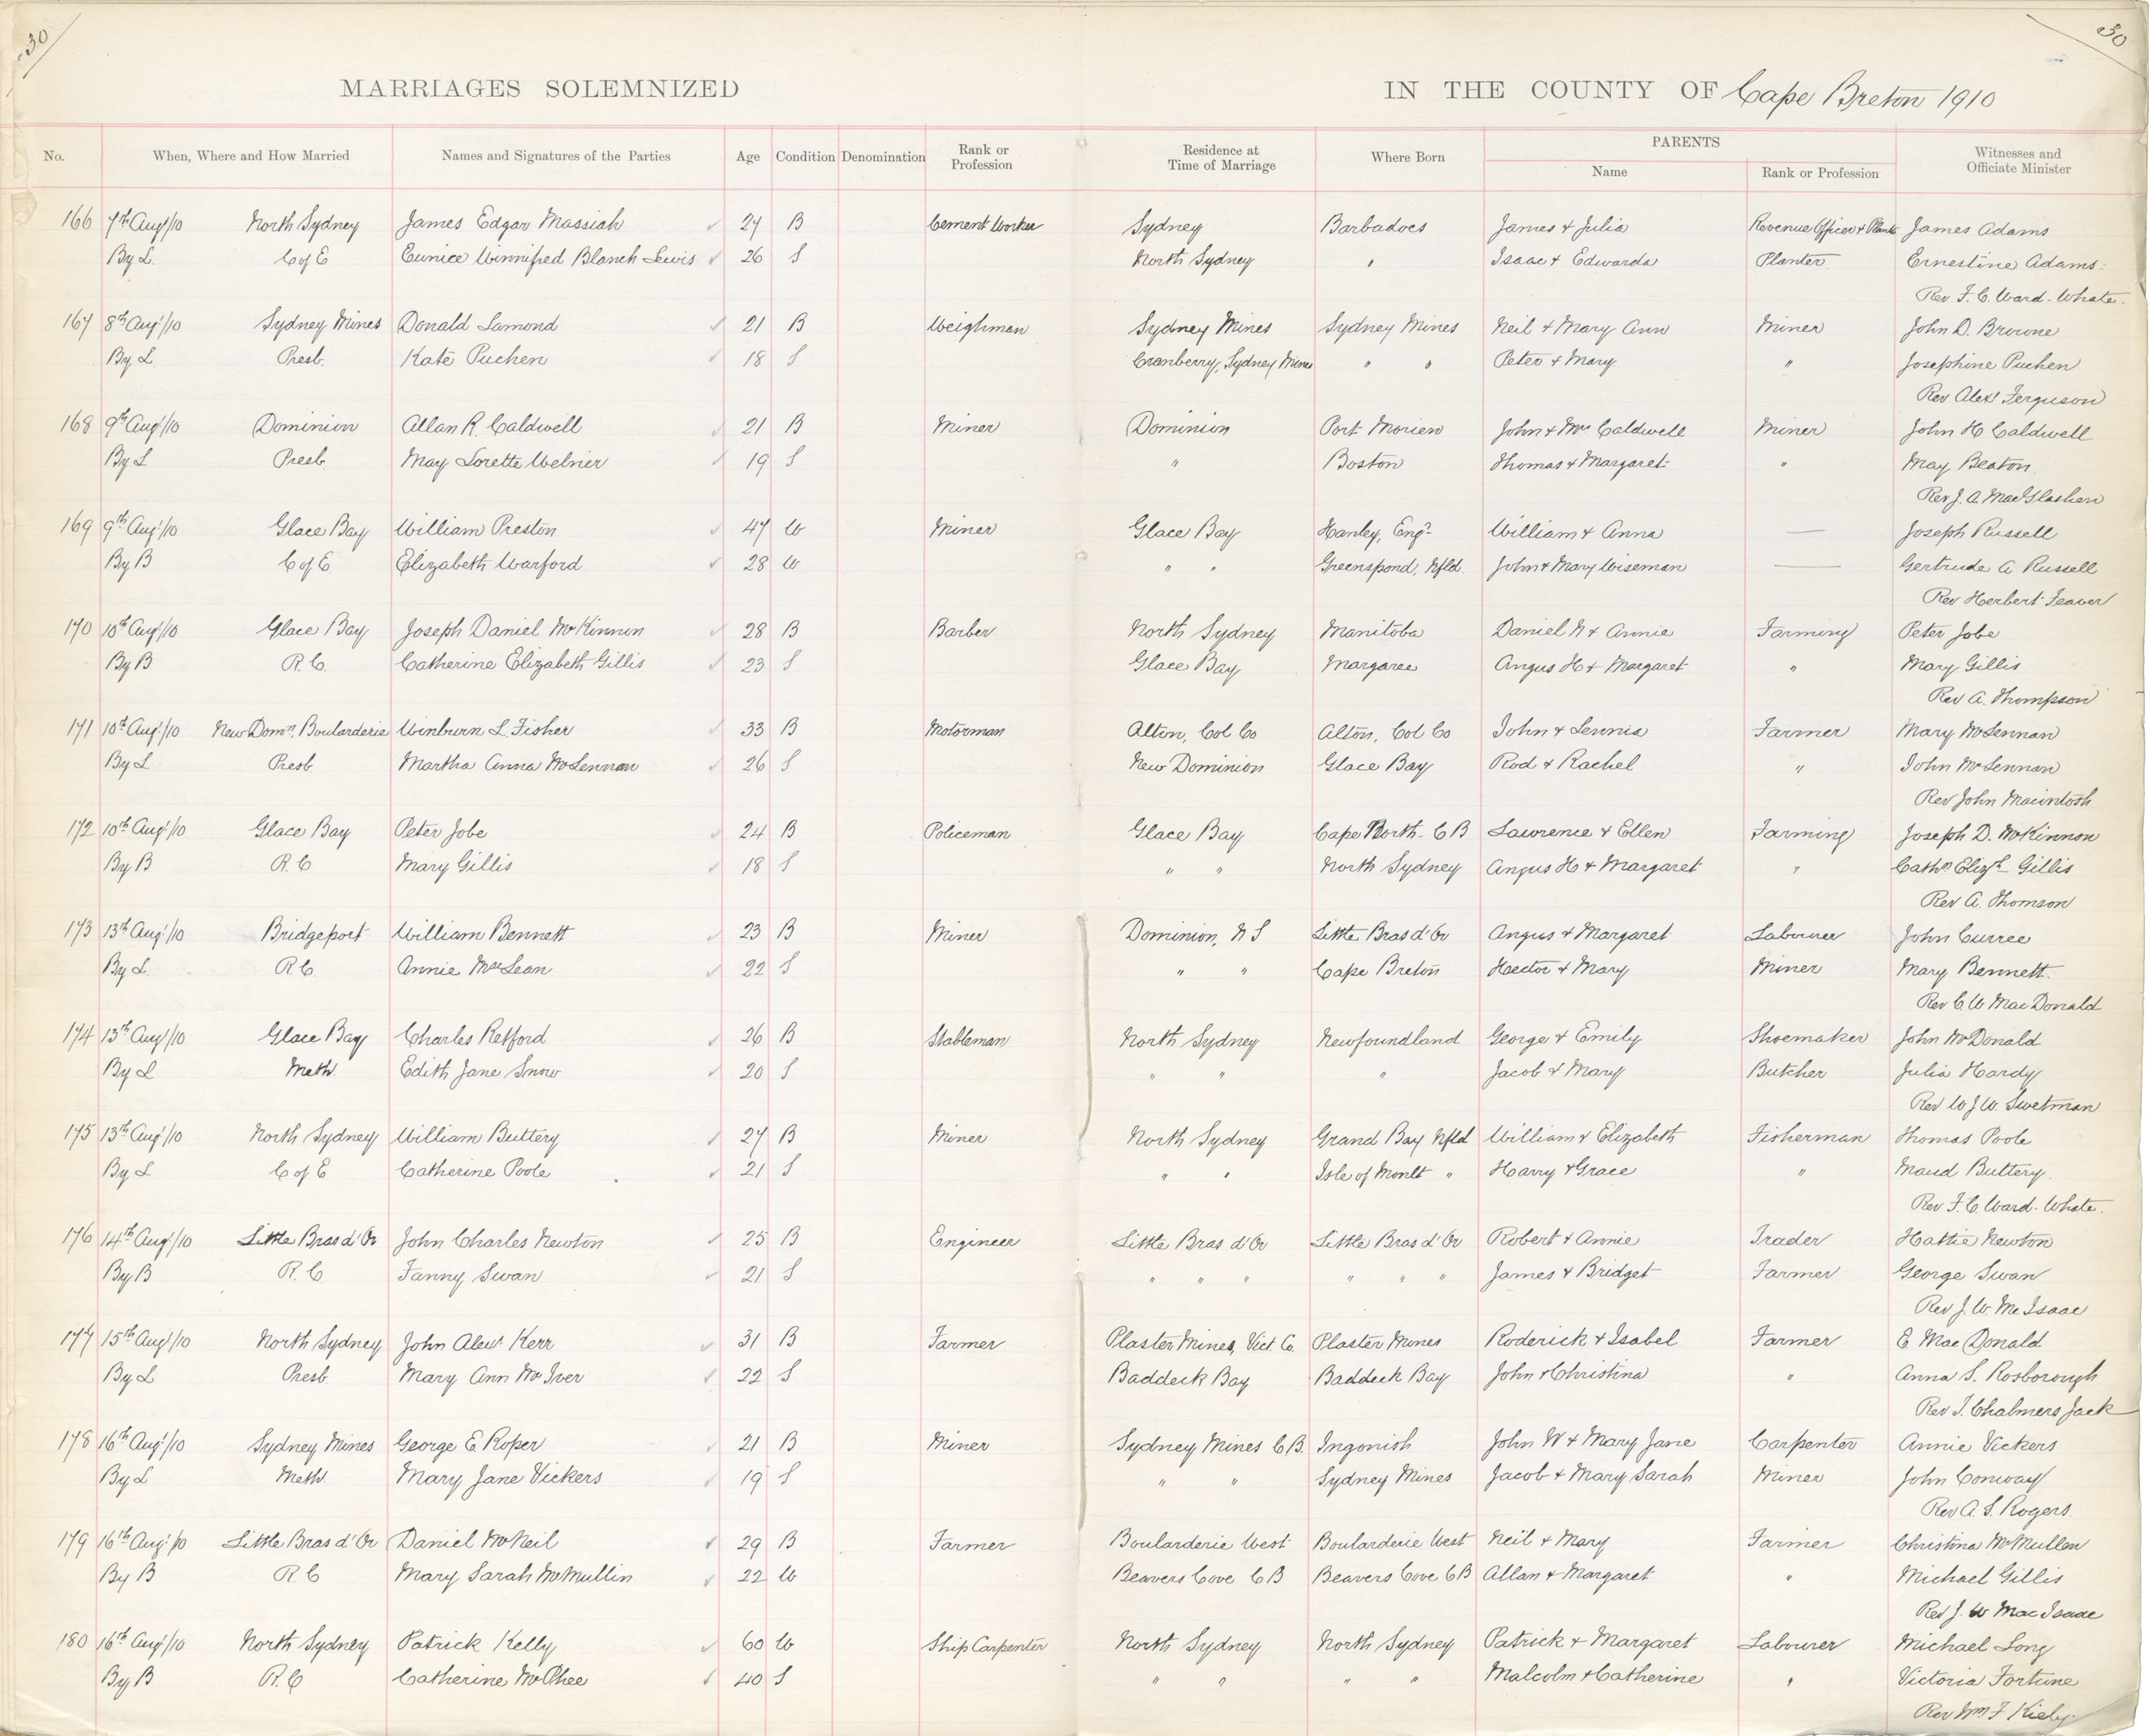 30 30
MARRIAGES SOLEMNIZED IN THE COUNTY OF Cape Breton 1910
No. When, Where and How Married Names and Signatures of the Parties Age Condition Denomination Rank or Profession Residence at Time of Marriage Where Born PARENTS Name Rank or Profession Witnesses and Officiate Minister
166 7th Aug/10 North Sydney James Edgar Massiah 27 B Cement Worker Sydney Barbadoes James & Julia Revenue Officer & Plantr James Adams
By L. C of E Eunice Winnifred Blanch Lewis 26 S North Sydney " Isaac & Edwarda Planter Ernestine Adams
Rev F. C. Ward-Whate.
167 8th Aug/10 Sydney Mines Donald Lamond 21 B Weighman Sydney Mines Sydney Mines Neil & Mary Ann Miner John D. Browne
By L Presb. Kate Puchen 18 S Cranberry, Sydney Mines " " Peter & Mary " Josephine Puchen
Rev Alex Ferguson
168 9th Aug/10 Dominion Allan R. Caldwell 21 B Miner Dominion Port Morien John & Mrs Caldwell Miner John H Caldwell
By L Presb. May Lorette Welner 19 S " Boston Thomas & Margaret " May Beaton
Rev J. A. MacGlashen
169 9th Aug/10 Glace Bay William Preston 47 W Miner Glace Bay Hanley, Engd William & Anna — Joseph Russell
By B C of E Elizabeth Warford 28 W " " Greenspond, Nfld. John & Mary Wiseman — Gertrude A Russell
Rev Herbert Feaver
170 10th Aug/10 Glace Bay Joseph Daniel McKinnon 28 B Barber North Sydney Manitoba Daniel N & Annie Farming Peter Jobe
By B R.C. Catherine Elizabeth Gillis 23 S Glace Bay Margaree Angus H & Margaret " Mary Gillis
Rev A. Thompson
171 10th Aug/10 New Domn. Boularderie Winburn L. Fisher 33 B Motorman Alton, Col Co Alton, Col Co John & Lennia Farmer Mary McLennan
By L Presb Martha Anna McLennan 26 S New Dominion Glace Bay Rod & Rachel " John McLennan
Rev John Macintosh
172 10th Aug/10 Glace Bay Peter Jobe 24 B Policeman Glace Bay Cape North. C B Lawrence & Ellen Farming Joseph D. McKinnon
By B R.C Mary Gillis 18 S " " North Sydney Angus H & Margaret " Cathn Elizth Gillis
Rev A. Thomson
173 13th Aug/10 Bridgeport William Bennett 23 B Miner Dominion, N S Little Bras d'Or Angus & Margaret Labourer John Curree
By L. R.C. Annie MacLean 22 S " " Cape Breton Hector & Mary Miner Mary Bennett.
Rev C W MacDonald
174 13th Aug/10 Glace Bay Charles Retford 26 B Stableman North Sydney Newfoundland George & Emily Shoemaker John McDonald
By L Meth. Edith Jane Snow 20 S " " " Jacob & Mary Butcher Julia Hardy
Rev W J W. Swetman
175 13th Aug/10 North Sydney William Buttery 27 B Miner North Sydney Grand Bay Nfld William & Elizabeth Fisherman Thomas Poole
By L C of E Catherine Poole 21 S " " Isle of Monlt " Harry & Grace " Maud Buttery.
Rev F. C. Ward-Whate.
176 14th Aug/10 Little Bras d'Or John Charles Newton 25 B Engineer Little Bras d'Or Little Bras d'Or Robert & Annie Trader Hattie Newton
By B R.C Fanny Swan 21 S " " " " " " James & Bridget Farmer George Swan
Rev J. W McIsaac
177 15th Aug/10 North Sydney John Alexr Kerr 31 B Farmer Plaster Mines, Vict. Co. Plaster Mines Roderick & Isabel Farmer E MacDonald
By L Presb Mary Ann McIver 22 S Baddeck Bay Baddeck Bay John & Christina " Anna S. Rosborough
Rev T. Chalmers Jack
178 16th Aug/10 Sydney Mines George E Roper 21 B Miner Sydney Mines C.B. Ingonish John W & Mary Jane Carpenter Annie Vickers
By L Meth. Mary Jane Vickers 19 S " " Sydney Mines Jacob & Mary Sarah Miner John Conway
Rev A. S. Rogers.
179 16th Aug/10 Little Bras d'Or Daniel McNeil 29 B Farmer Boularderie West Boularderie West Neil & Mary Farmer Christina McMullen
By B R.C Mary Sarah McMullin 22 W Beavers Cove C B Beavers Cove C B Allan & Margaret " Michael Gillis
Rev J. W MacIsaac
180 16th Aug/10 North Sydney Patrick Kelly 60 W Ship Carpenter North Sydney North Sydney Patrick & Margaret Labourer Michael Long
By B R.C Catherine McPhee 40 S " " " " Malcolm & Catherine " Victoria Fortune
Rev Wm F Kiely